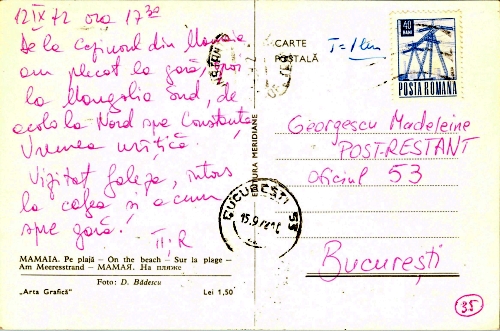 12 IX 72 ora 17 30
De la Cazinoul din Mamaia
am plecat la gară, apoi
la Mangalia Sud, de
acolo la Nord spre Constanța
Vremea urîțică!
Vizitat faleza, întors
la cafea și acum
spre gară!
CARTE
POȘTALĂ
T = 1 leu
40
BANI
POSTA ROMANA
Georgescu Madeleine
POST-RESTANT
Oficiul 53
București
EDITURA MERIDIANE
BUCUREȘTI 53
15.9
MAMAIA. Pe plajă – On the beach – Sur la plage –
Am Meeresstrand – МАМАЯ. На пляже
Foto: D. Bădescu
„Arta Grafică"
Lei 1,50
35